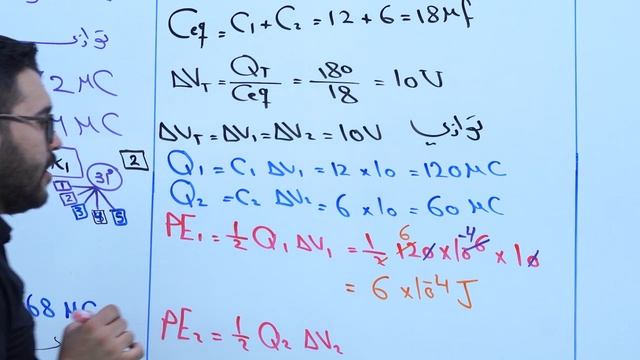 توازي
2 MC
MC
K1
3P
1
2
3
4
5
2
68 MC
Ceq = C1 + C2 = 12 + 6 = 18 Mf
ΔVT = QT / Ceq = 180 / 18 = 10V
ΔVT = ΔV1 = ΔV2 = 10V توازي
Q1 = C1 ΔV1 = 12 × 10 = 120 MC
Q2 = C2 ΔV2 = 6 × 10 = 60 MC
PE1 = 1/2 Q1 ΔV1 = 1/2 120 × 10^-6 × 10 6 -4
= 6 × 10^-4 J
PE2 = 1/2 Q2 ΔV2